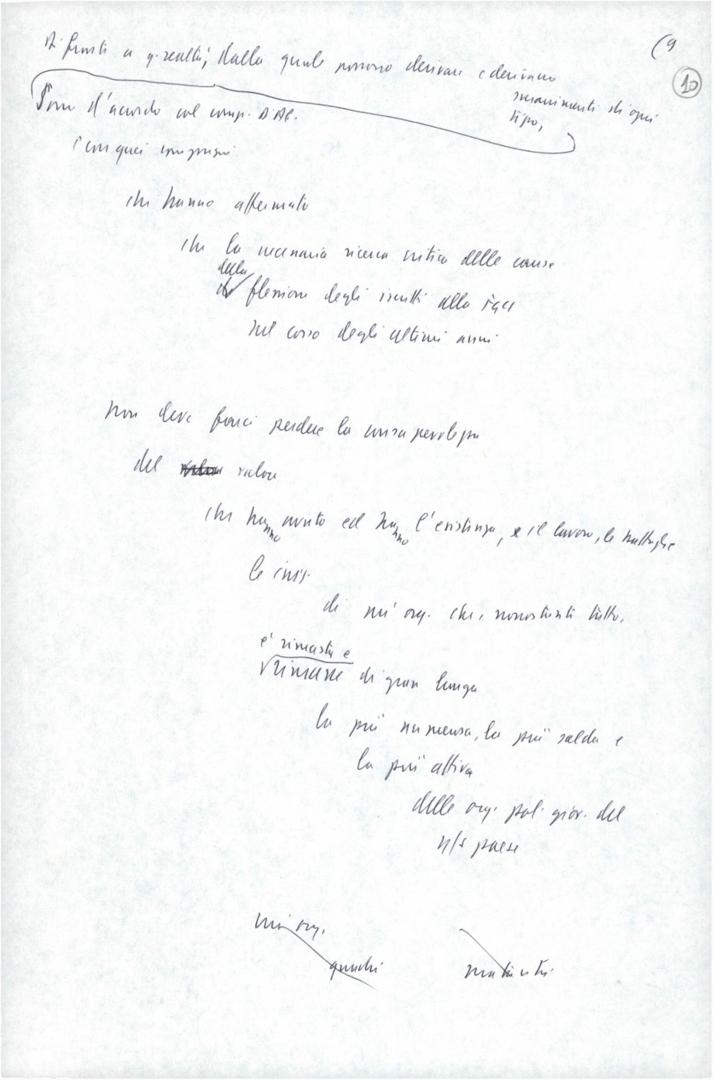 (9
10
Di fronte a q. realtà, dalla quale possono derivare e derivano
smarrimenti di ogni
tipo,
Sono d'accordo col comp. D'Al.
e con quei compagni
che hanno affermato
che la necessaria ricerca critica delle cause
della
flessione degli iscritti alla FGCI
nel corso degli ultimi anni
non deve farci perdere la consapevolezza
del valore
che hanno avuto ed hanno l'esistenza, e il lavoro, le battaglie
le iniz.
di un'org. che, nonostante tutto,
è rimasta e
rimane di gran lunga
la più numerosa, la più salda e
la più attiva
delle org. pol. giov. del
n/s paese
un'org.
quindi